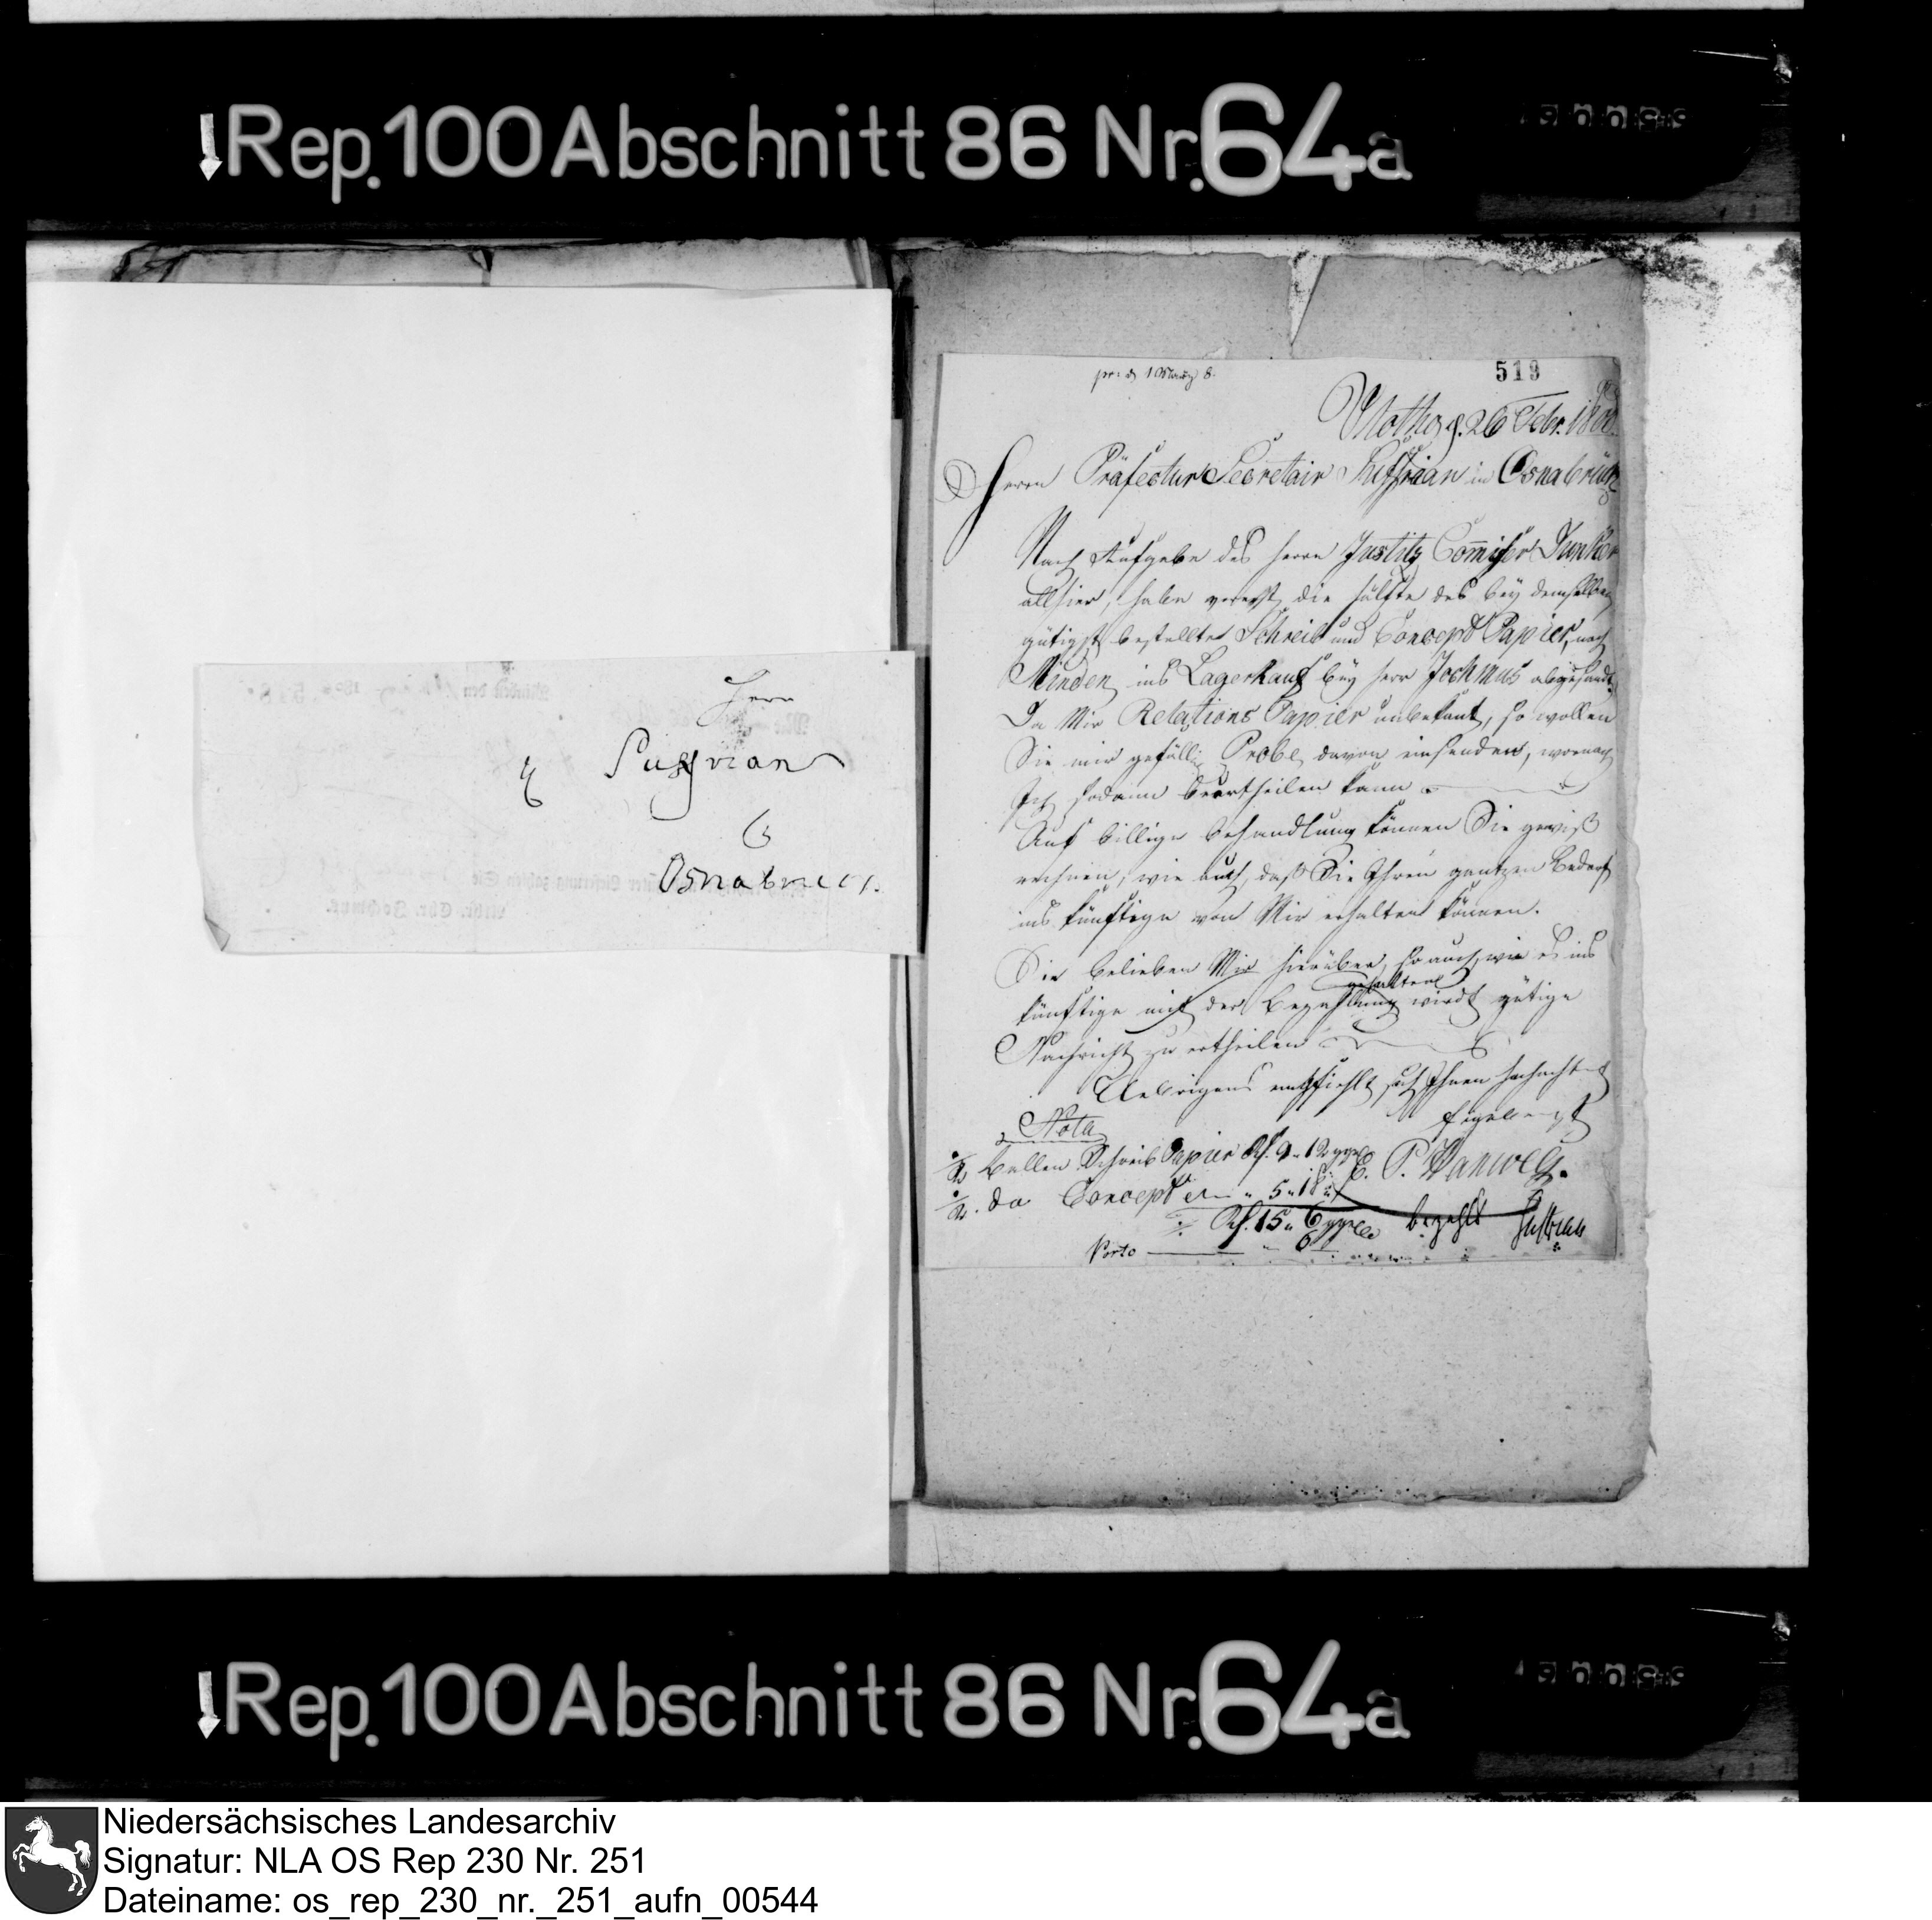 Rep. 100 Abschnitt 86 Nr. 64a
Herrn
Osnabrück.
pr: d 1 März 8.
519
Vlotho d. 26 Febr. 1808.
Herrn Präfectur Secretair in Osnabrück
Nach Aufgabe des Herrn Justitz Commissr Junker
allhier, habe vorerst die Hälfte des bey demselben
gütigst bestellten Schreib und Concept Papier, nach
Minden ins Lagerhaus bey Herr Jochmus abgesandt.
Da Mir Relations Papier unbekant, so wollen
Sie mir gefällig Probe davon einsenden, wornach
Ich sodann beurtheilen kann
Auf billige Behandlung können Sie gewiß
rechnen, wie auch, daß Sie Ihren gantzen Bedarf
ins künftige von Mir erhalten können.
Sie belieben Mir hierüber, so auch, wie es ins
künftige mit der Bezahlung gehalten wird gütige
Nachricht zu ertheilen
Uebrigens empfiehlt sich Ihnen hochachtend
Ergebenst
Nota
1/2 Ballen Schreib Papier Rh. 9 " 12 ggr
1/2 do Concept " 5 " 18
Rh. 15 " 6 ggr bezahlt
Porto " 6
Rep. 100 Abschnitt 86 Nr. 64a
Niedersächsisches Landesarchiv
Signatur: NLA OS Rep 230 Nr. 251
Dateiname: os_rep_230_nr._251_aufn_00544